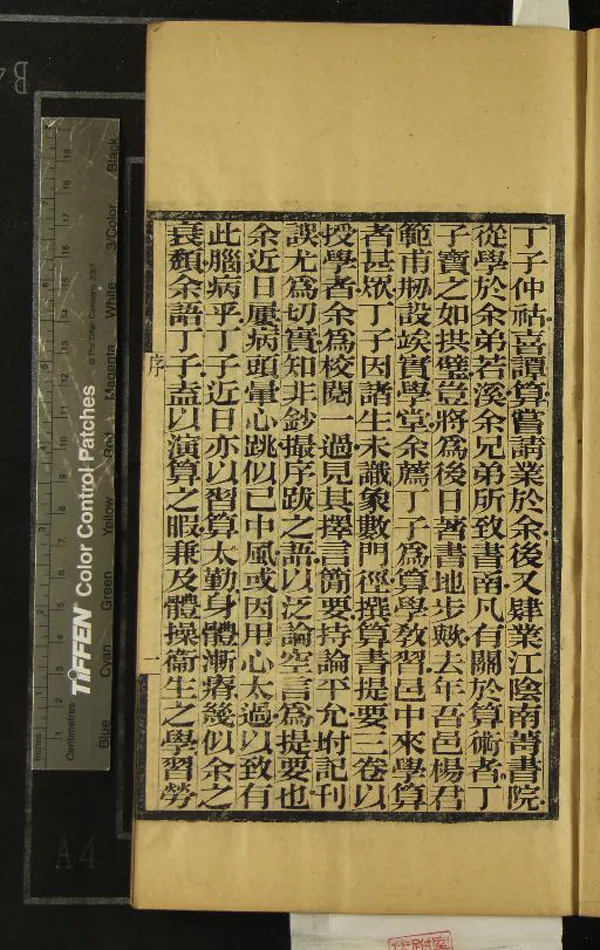 丁子仲祜喜譚算嘗請業於余後又肄業江陰南菁書院
從學於余弟若溪余兄弟所致書南凡有關於算術者丁
子寶之如拱璧豈將爲後日著書地步歟去年吾邑楊君
範甫剏設竢實學堂余薦丁子爲算學敎習邑中來學算
者甚燬丁子因諸生未識象數門徑撰算書提要三卷以
授學者余爲校閱一過見其擇言簡要持論平允坿記刊
誤尤爲切實知非鈔撮序跋之語以泛論空言爲提要也
余近日屢病頭暈心跳似已中風或因用心太過以致有
此腦病乎丁子近日亦以習算太勤身體漸瘠幾似余之
衰頹余語丁子盍以演算之暇兼及體操衞生之學習勞
序
一
TIFFEN Color Control Patches
© The Tiffen Company, 2007
Inches
Centimetres
Blue
Cyan
Green
Yellow
Red
Magenta
White
3/Color
Black
A4